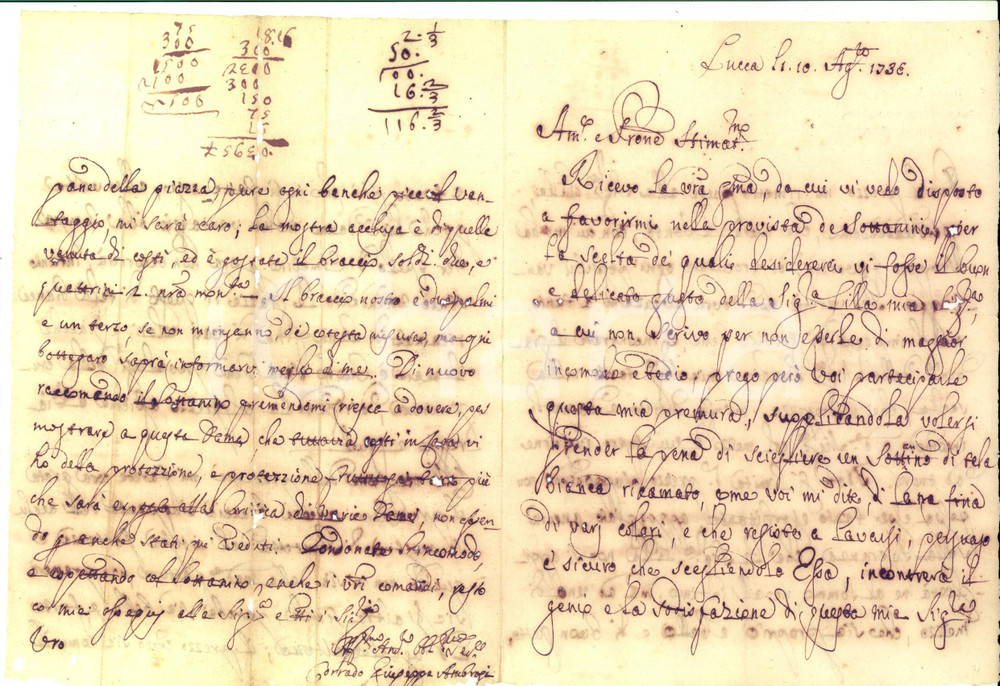 Lucca li 10. Ag.to 1736.
Am.o e Prone Stimat.mo
Ricevo la vra gma, da cui vi vedo disposto
a favorirmi nella provista de Sottanini, per
la scelta de quali desidererei vi fosse il buon
e delicato gusto della Sig.ra Lilla mia
a cui non scrivo per non esserle di maggior
incomodo e tedio, prego però voi partecipale
questa mia premura, supplicandola volersi
prender la pena di sciegliere un Sottnino di tela
bianca ricamato, come voi mi dite, di lana fina
di varj colori, e che resista a lavarsi, persuaso
e sicuro che scegliendolo Essa, incontrerà il
genio e la sodisfazione di questa mia Sig.ra
75
300
1500
2100
300
2400
300
150
75
2 1/3
50.
00.
16. 2/3
116. 2/3
pane della piazza, pure ogni benche piccol van-
taggio, mi sarà caro; La mostra acclusa è di quelle
venuta di costì, ed è costate il braccio soldi due, e
quattrini 2 nra mon.ta Il braccio nostro è due palmi
e un terzo, se non m'inganno, di cotesta misura, ma ogni
bottegaro saprà informarvi meglio di me. Di nuovo
raccomando il sottanino premendomi riesca a dovere, per
mostrare a questa Dama che costì vi
ho della protezzione, e protezzione più
che sarà alla critica di varie Dame, non essen-
do p anche stati qui veduti. Condonate l'incomodo,
e aspettando col sottanino, anche i vri comandi, resto
co miei ossequi alla Sig.ra
Vro
Corrado Giuseppe Ambrogi